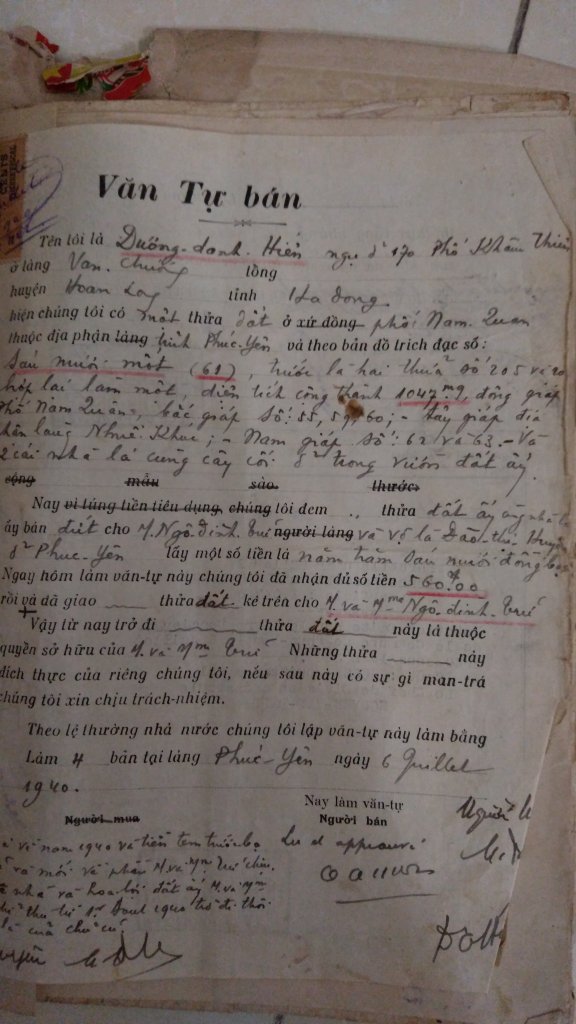 Văn Tự bán
Tên tôi là Dương-danh-Hiển ngụ ở 170 Phố Khâm Thiên
ở làng Van. Chương tổng
huyện Hoan Long tỉnh Ha dong.
hiện chúng tôi có một thửa đất ở xứ đồng phố Nam. Quan
thuộc địa phận làng tỉnh Phuc-Yên và theo bản đồ trích đạc số:
Sáu mươi một (61), trước là hai thửa số 205 và
hợp lại làm một, diện tích cộng thành 1047m9, đông giáp
Phố Nam Quan, bắc giáp số: 55, 59, 60; - tây giáp địa
phận làng Nhuế Khúc; - Nam giáp số: 62 và 63. - Và
2 cái nhà lá cùng cây cối ở trong vườn đất ấy.
cộng mẫu sào thước
Nay vì túng tiền tiêu dụng, chúng tôi đem thửa đất ấy cùng nhà lá
ấy bán đứt cho M. Ngô. đình. Tuế người làng và vợ là Đào-thị Huyên
ở Phuc-Yên lấy một số tiền là năm trăm sáu mươi đồng bạc
Ngay hôm làm văn-tự này chúng tôi đã nhận đủ số tiền 560$00
rồi và đã giao thửa đất kê trên cho M. và Mme Ngô. đình. Tuế
Vậy từ nay trở đi thửa đất này là thuộc
quyền sở hữu của M. và Mme Tuế Những thửa này
đích thực của riêng chúng tôi, nếu sau này có sự gì man-trá
chúng tôi xin chịu trách-nhiệm.
Theo lệ thường nhà nước chúng tôi lập văn-tự này làm bằng
Làm 4 bản tại làng Phuc-Yên ngày 6 Juillet
1940.
Nay làm văn-tự
Người mua Người bán Người
vì năm 1940 và tiền tem trước bạ Lu et approuvé
và mới về phần M. và Mme Tuế chịu.
nhà và hoa lợi đất ấy M. và Mme
thu từ 1er Aout 1940 trở đi thôi
là của chủ cũ